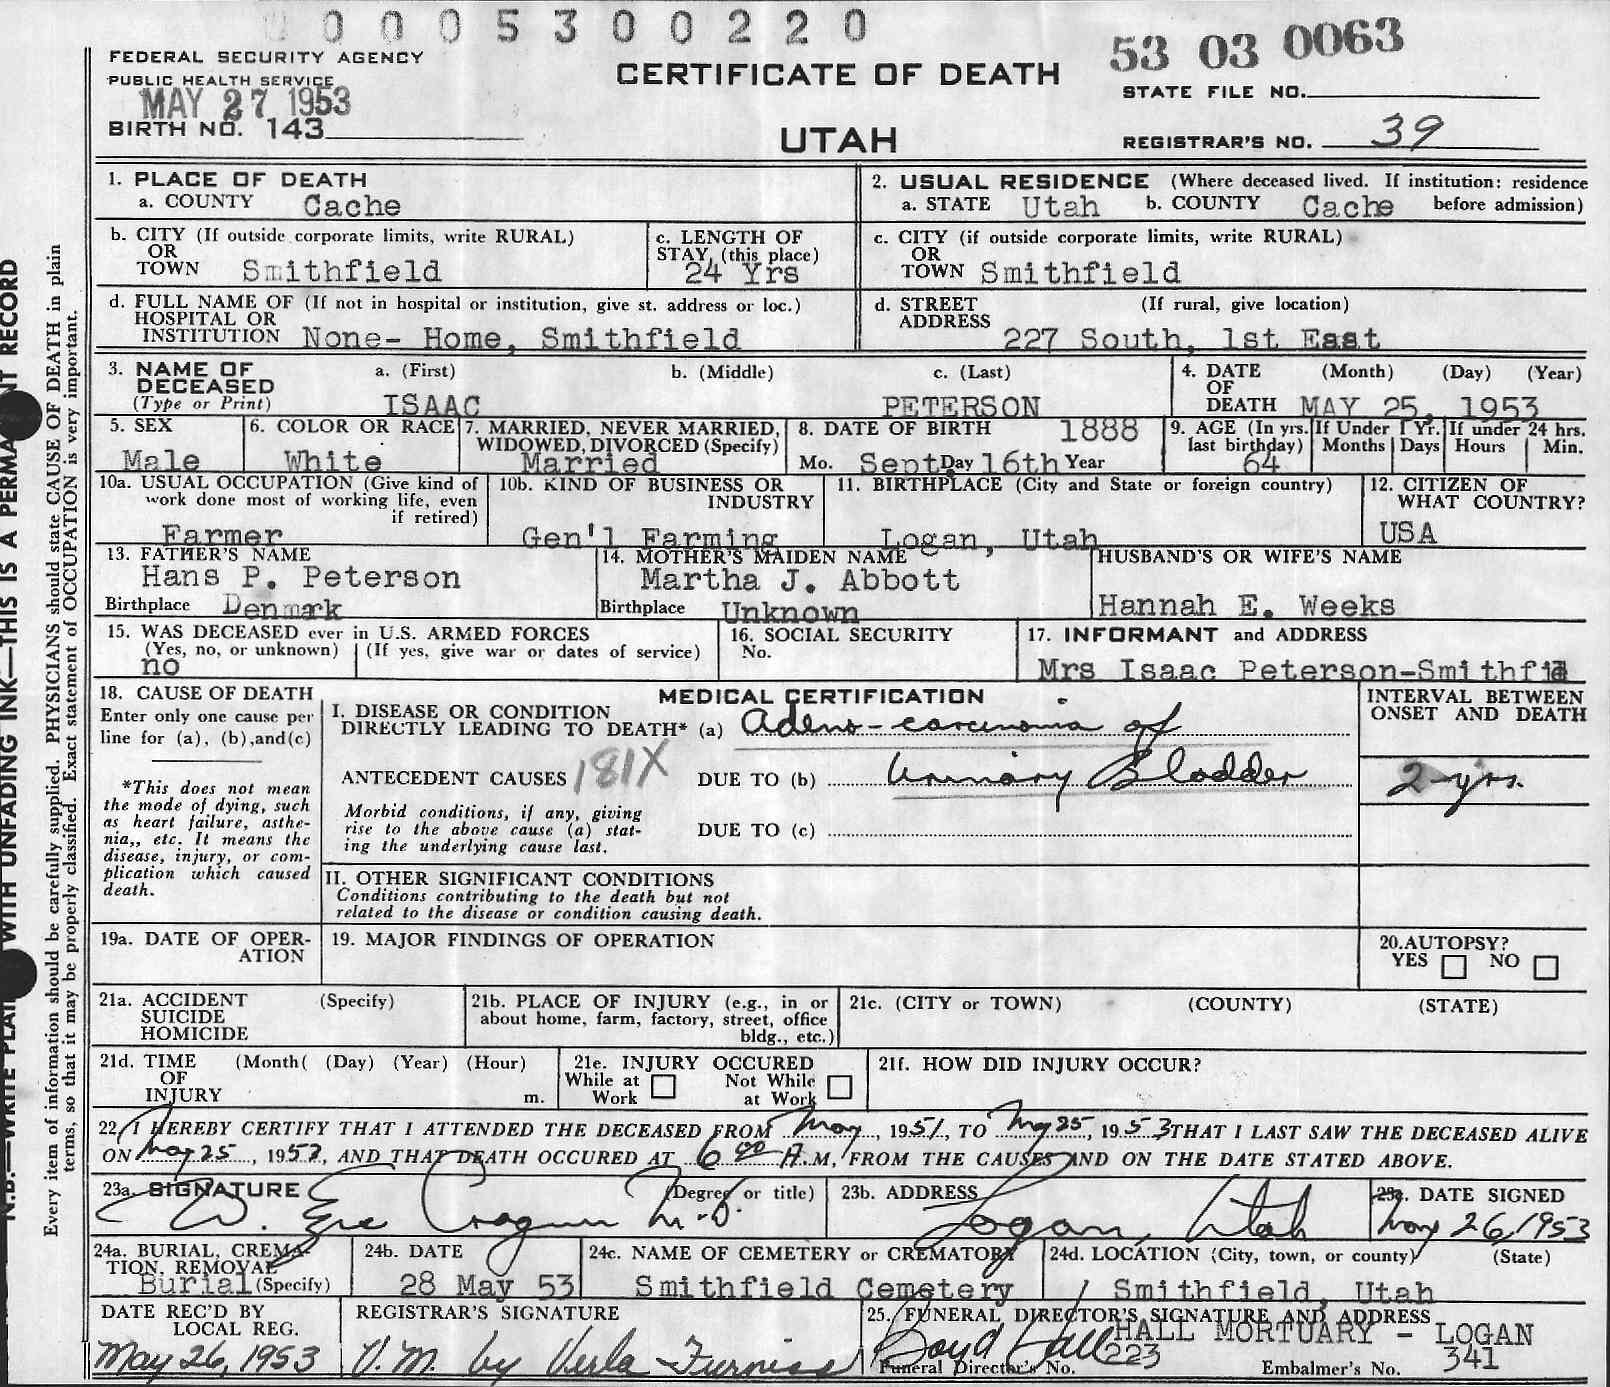 0 0 0 5 3 0 0 2 2 0
53 03 0063
FEDERAL SECURITY AGENCY
PUBLIC HEALTH SERVICE
MAY 27 1953
BIRTH NO. 143
CERTIFICATE OF DEATH
UTAH
STATE FILE NO.
REGISTRAR'S NO. 39
1. PLACE OF DEATH
a. COUNTY Cache
2. USUAL RESIDENCE (Where deceased lived. If institution: residence before admission)
a. STATE Utah b. COUNTY Cache
b. CITY (If outside corporate limits, write RURAL)
OR
TOWN Smithfield
c. LENGTH OF
STAY (this place)
24 Yrs
c. CITY (if outside corporate limits, write RURAL)
OR
TOWN Smithfield
d. FULL NAME OF (If not in hospital or institution, give st. address or loc.)
HOSPITAL OR
INSTITUTION None- Home, Smithfield
d. STREET (If rural, give location)
ADDRESS 227 South, 1st East
3. NAME OF a. (First) b. (Middle) c. (Last)
DECEASED
(Type or Print) ISAAC PETERSON
4. DATE (Month) (Day) (Year)
OF
DEATH MAY 25, 1953
5. SEX
Male
6. COLOR OR RACE
White
7. MARRIED, NEVER MARRIED,
WIDOWED, DIVORCED (Specify)
Married
8. DATE OF BIRTH 1888
Mo. Sept Day 16th Year
9. AGE (In yrs. last birthday)
64
If Under 1 Yr.
Months Days
If under 24 hrs.
Hours Min.
10a. USUAL OCCUPATION (Give kind of
work done most of working life, even
if retired)
Farmer
10b. KIND OF BUSINESS OR
INDUSTRY
Gen'l Farming
11. BIRTHPLACE (City and State or foreign country)
Logan, Utah
12. CITIZEN OF
WHAT COUNTRY?
USA
13. FATHER'S NAME
Hans P. Peterson
Birthplace Denmark
14. MOTHER'S MAIDEN NAME
Martha J. Abbott
Birthplace Unknown
HUSBAND'S OR WIFE'S NAME
Hannah E. Weeks
15. WAS DECEASED ever in U.S. ARMED FORCES
(Yes, no, or unknown) (If yes, give war or dates of service)
no
16. SOCIAL SECURITY
No.
17. INFORMANT and ADDRESS
Mrs Isaac Peterson-Smithfid
18. CAUSE OF DEATH
Enter only one cause per
line for (a), (b),and(c)
*This does not mean
the mode of dying, such
as heart failure, asthe-
nia,, etc. It means the
disease, injury, or com-
plication which caused
death.
MEDICAL CERTIFICATION
I. DISEASE OR CONDITION
DIRECTLY LEADING TO DEATH* (a) Adeno-carcinoma of
ANTECEDENT CAUSES 181X DUE TO (b) Urinary Bladder
Morbid conditions, if any, giving
rise to the above cause (a) stat-
ing the underlying cause last.
DUE TO (c)
INTERVAL BETWEEN
ONSET AND DEATH
2 yrs.
II. OTHER SIGNIFICANT CONDITIONS
Conditions contributing to the death but not
related to the disease or condition causing death.
19a. DATE OF OPER-
ATION
19. MAJOR FINDINGS OF OPERATION
20.AUTOPSY?
YES NO
21a. ACCIDENT (Specify)
SUICIDE
HOMICIDE
21b. PLACE OF INJURY (e.g., in or
about home, farm, factory, street, office
bldg., etc.)
21c. (CITY or TOWN) (COUNTY) (STATE)
21d. TIME (Month( (Day) (Year) (Hour)
OF
INJURY m.
21e. INJURY OCCURED
While at Work Not While at Work
21f. HOW DID INJURY OCCUR?
22. I HEREBY CERTIFY THAT I ATTENDED THE DECEASED FROM May, 1951, TO May 25, 1953 THAT I LAST SAW THE DECEASED ALIVE
ON May 25, 1953, AND THAT DEATH OCCURED AT 6 00 A.M, FROM THE CAUSES AND ON THE DATE STATED ABOVE.
23a. SIGNATURE (Degree or title)
W. Eze Cragun M.D.
23b. ADDRESS
Logan, Utah
23c. DATE SIGNED
May 26, 1953
24a. BURIAL, CREMA-
TION, REMOVAL
Burial (Specify)
24b. DATE
28 May 53
24c. NAME OF CEMETERY or CREMATORY
Smithfield Cemetery
24d. LOCATION (City, town, or county) (State)
Smithfield, Utah
DATE REC'D BY
LOCAL REG.
May 26, 1953
REGISTRAR'S SIGNATURE
V.M. by Verla Furniss
25. FUNERAL DIRECTOR'S SIGNATURE AND ADDRESS
Boyd Hall HALL MORTUARY - LOGAN
Funeral Director's No. 223 Embalmer's No. 341
WITH UNFADING INK—THIS IS A PERMANENT RECORD
N.B.—WRITE PLAI
Every item of information should be carefully supplied. PHYSICIANS should state CAUSE OF DEATH in plain
terms, so that it may be properly classified. Exact statement of OCCUPATION is very important.